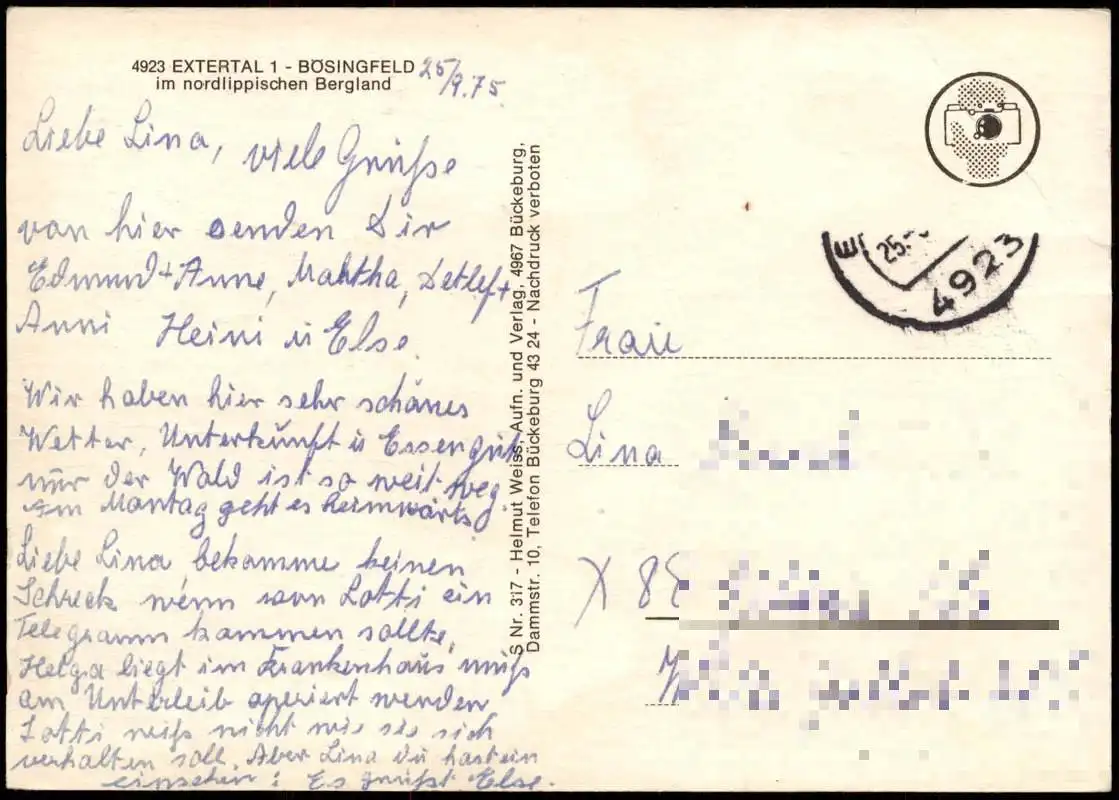 4923 EXTERTAL 1 - BÖSINGFELD
im nordlippischen Bergland
25/9.75.
Liebe Lina, viele Grüße
von hier senden Dir
Edmund + Anne, Martha, Detlef +
Anni Heini u Else.
Wir haben hier sehr schönes
Wetter, Unterkunft u Essen gut
nur der Wald ist so weit weg
Am Montag geht es heimwärts
Liebe Lina bekomme keinen
Schreck wenn von Lotti ein
Telegramm kommen sollte,
Helga liegt im Krankenhaus, muß
am Unterleib operiert werden
Lotti weiß nicht wie sie sich
verhalten soll. Aber Lina du hast ein
einsehen! Es grüßt Else.
S Nr. 317 - Helmut Weiss, Aufn. und Verlag, 4967 Bückeburg,
Dammstr. 10, Telefon Bückeburg 43 24 - Nachdruck verboten
25.-
4923
Frau
Lina
X 88